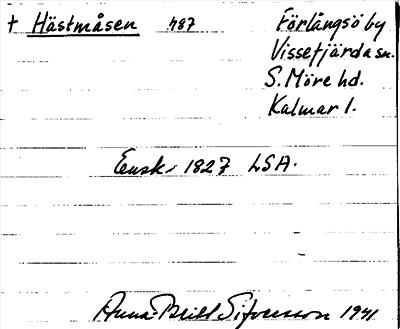 † Hästmåsen 487 Förlångsö by
Vissefjärda sn.
S. Möre hd.
Kalmar l.
Ensk. 1827 LSA.
Anna-Britt Sifvertsson 1941